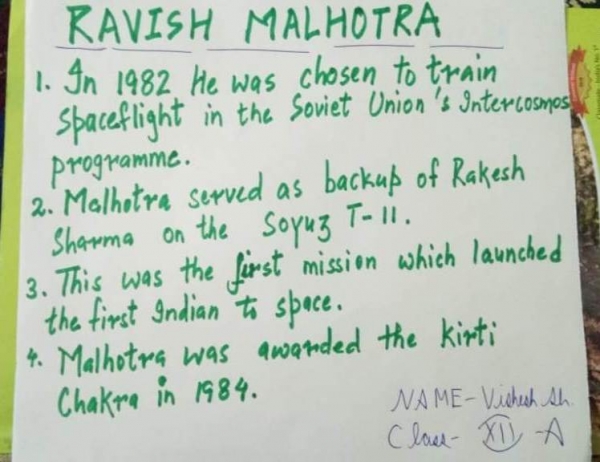 RAVISH MALHOTRA
1. In 1982 He was chosen to train
spaceflight in the Soviet Union's Intercosmos
programme.
2. Malhotra served as backup of Rakesh
Sharma on the Soyuz T-11.
3. This was the first mission which launched
the first Indian to space.
4. Malhotra was awarded the kirti
Chakra in 1984.
NAME- Vishesh
Class- XII -A